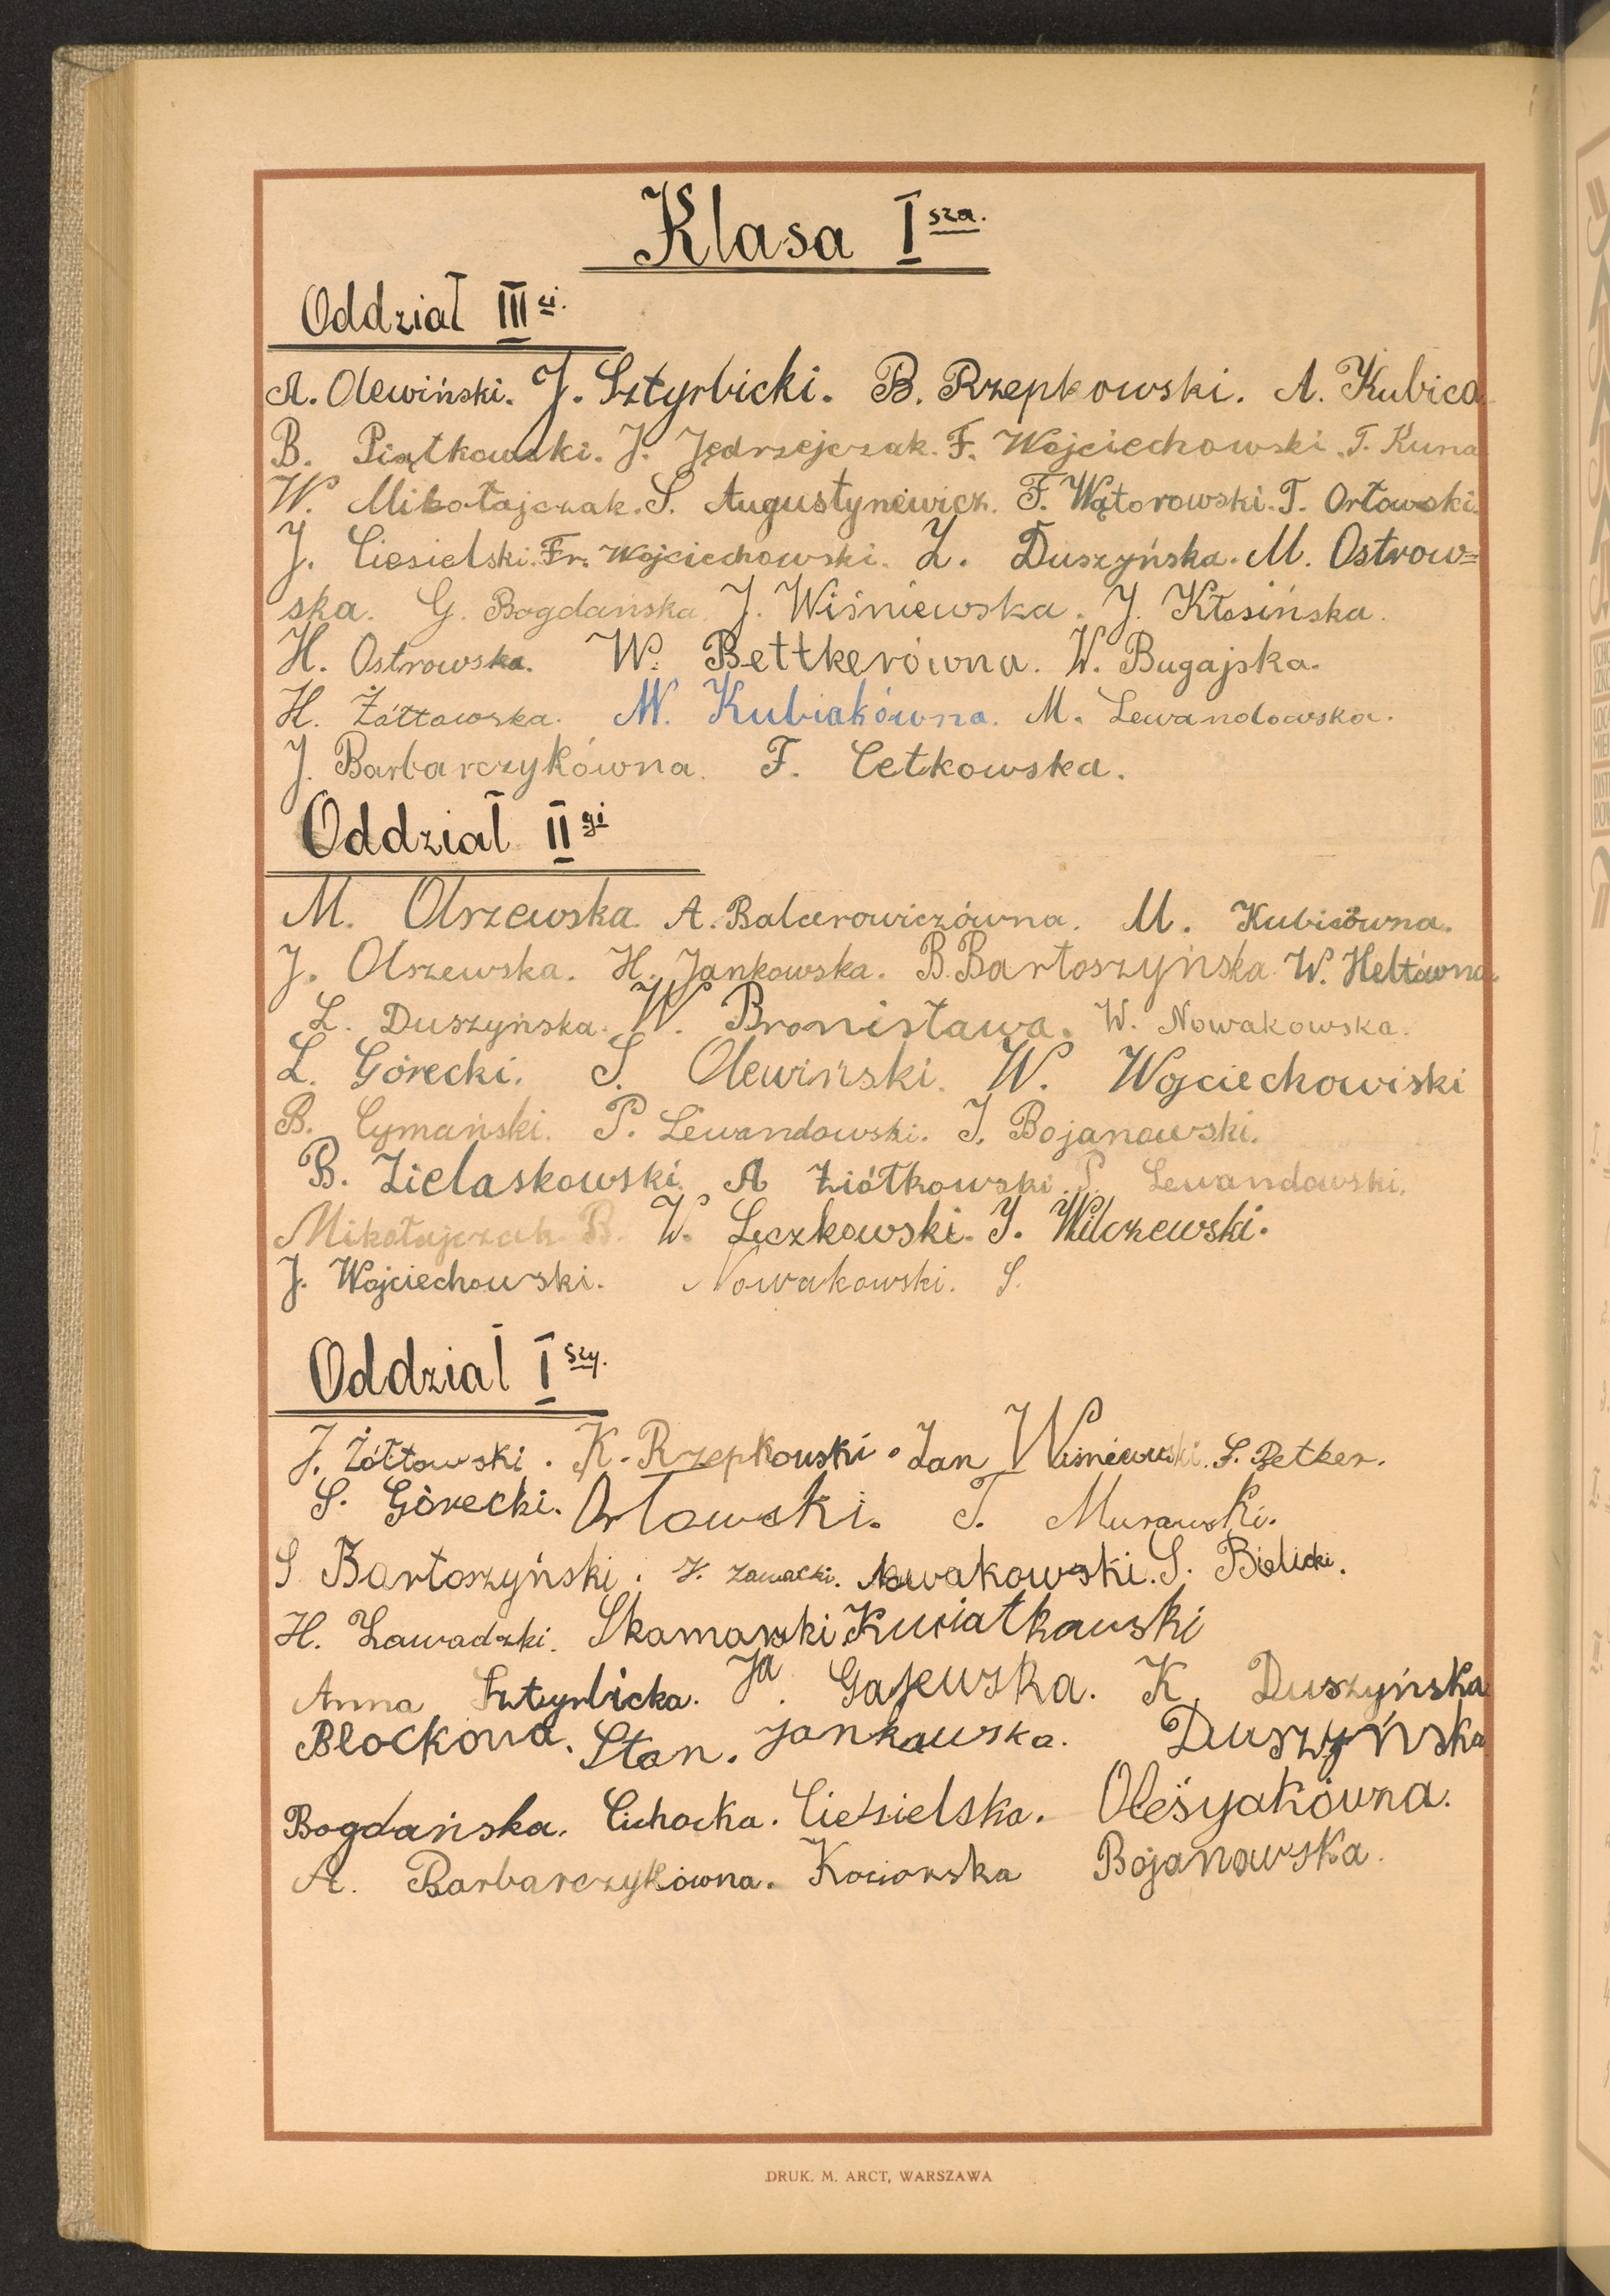 Klasa I sza.
Oddział III ci.
A. Olewiński. J. Sztyrbicki. B. Rzepkowski. A. Kubica
B. Piątkowski. J. Jędrzejczak. F. Wojciechowski. T. Kuna
W. Mikołajczak. S. Augustynewicz. F. Wątorowski. T. Orłowski.
J. Ciesielski. Fr. Wojciechowski. Z. Duszyńska. M. Ostrow=
ska. G. Bogdańska. J. Wiśniewska. J. Kłosińska.
H. Ostrowska. W. Bettkerówna. W. Bugajska.
H. Żółtowska. M. Kubiakówna. M. Lewandowska.
J. Barbarczykówna. F. Cetkowska.
Oddział II gi
M. Olszewska. A. Balcerowiczówna. M. Kubicówna.
J. Olszewska. H. Jankowska. B. Bartoszyńska. W. Heltówna
L. Duszyńska. W. Bronisława. W. Nowakowska.
L. Górecki. S. Olewiński. W. Wojciechowiski
B. Cymański. P. Lewandowski. J. Bojanowski.
B. Zielaskowski. A Ziółkowski. P. Lewandowski.
Mikołajczak B. W. Leczkowski. J. Wilczewski.
J. Wojciechowski. Nowakowski. S.
Oddział I szy.
J. Żółtowski. K. Rzepkowski. Jan Wiśniewski. S. Betker.
S. Górecki. Orłowski. T. Murawski.
S Bartoszyński. J. Zawacki. Nowakowski. S. Bielicki.
H. Zawadzki. Skamarski Kwiatkowski
Anna Sztyrbicka. Ja. Gajewska. K. Duszyńska
Błockowa. Stan. Jankowska. Duszyńska
Bogdańska. Cichocka. Ciesielska. Olesyakówna.
A. Barbarczykówna. Bojanowska.
DRUK. M. ARCT, WARSZAWA